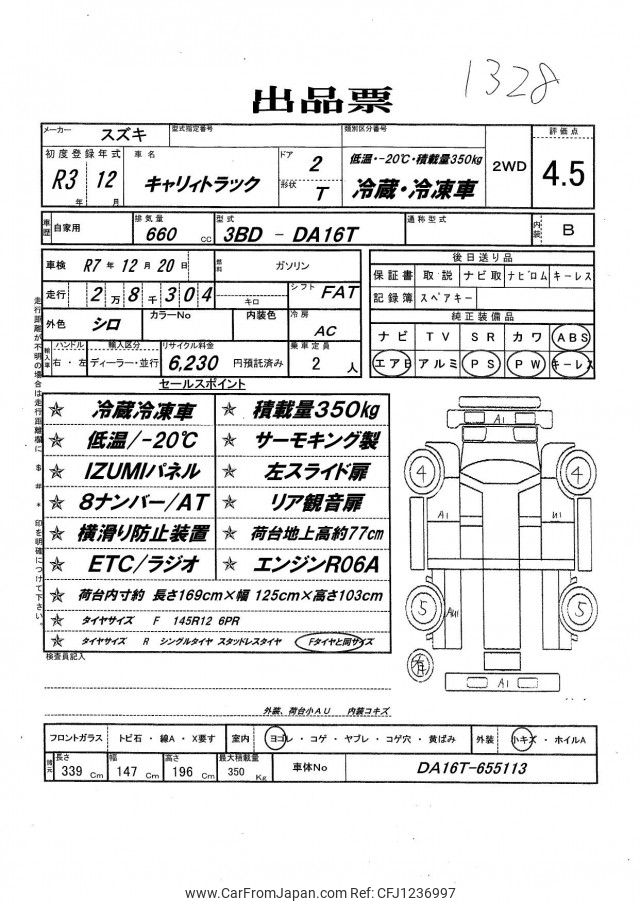 1328
出品票
メーカー スズキ 型式指定番号 類別区分番号 評価点
初度登録年式 車名 ドア 2 低温・-20℃・積載量350kg 2WD 4.5
R3年 12月 キャリィトラック 形状 T 冷蔵・冷凍車
車歴 自家用 排気量 660 cc 型式 3BD - DA16T 通称型式 内装 B
車検 R7年 12月 20日 燃料 ガソリン 後日送り品
保証書 取・説 ナビ取 ナビロム キーレス
走行 2万 8千 304 キロ シフト FAT 記録簿 スペアキー
外色 シロ カラーNo 内装色 冷房 AC 純正装備品
ナビ TV SR カワ ABS
輸入車 ハンドル 右・左 輸入区分 ディーラー・並行 リサイクル料金 6,230 円預託済み 乗車定員 2 人
エアB アルミ PS PW キーレス
走行距離が不明の場合は走行距離欄に $ # * 印を明確につけて下さい。
セールスポイント
☆ 冷蔵冷凍車 ☆ 積載量350kg
☆ 低温/-20℃ ☆ サーモキング製
☆ IZUMIパネル ☆ 左スライド扉
☆ 8ナンバー/AT ☆ リア観音扉
☆ 横滑り防止装置 ☆ 荷台地上高約77cm
☆ ETC/ラジオ ☆ エンジンR06A
☆ 荷台内寸約 長さ169cm×幅 125cm×高さ103cm
☆ タイヤサイズ F 145R12 6PR
☆ タイヤサイズ R シングルタイヤ スタッドレスタイヤ Fタイヤと同サイズ
A1
4 4
A1 U1
5 AU1 5
有
A1
検査員記入
外装、荷台小AU 内装コキズ
フロントガラス トビ石・線A・X要す 室内 ヨゴレ・コゲ・ヤブレ・コゲ穴・黄ばみ 外装 小キズ・ホイルA
諸元 長さ 339 Cm 幅 147 Cm 高さ 196 Cm 最大積載量 350 Kg 車体No DA16T-655113
www.CarFromJapan.com Ref: CFJ1236997